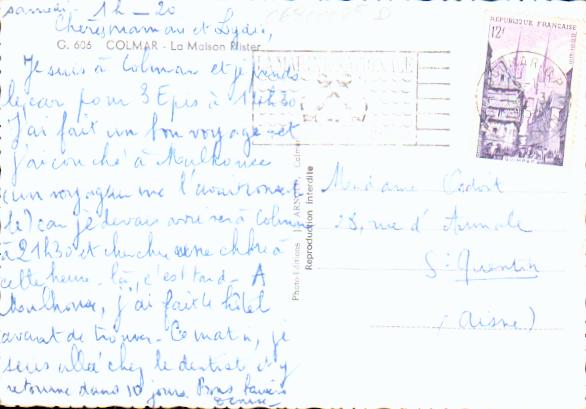 samedi. 1h - 20
Chères maman et Lydie,
G. 606 COLMAR - La Maison Pfister
Je suis à Colmar et je prends
le car pour 3 Epis à 14h30
J'ai fait un bon voyage et
j'ai couché à Mulhouse
(un voyageur me l'avait conseil
lé) car je devais arriver à Colmar
à 21h30 et chercher une chbre à
cette heure-là, c'est tard - A
Mulhouse, j'ai fait hôtel
avant de trouver. Ce matin, je
suis allée chez le dentiste, j'y
retourne dans 10 jours. Bons baisers
Denise
Photo-Editions
Reproduction interdite
REPUBLIQUE FRANÇAISE
12f
QUIMPER
Madame
28, rue d'Aumale
St Quentin
(Aisne)